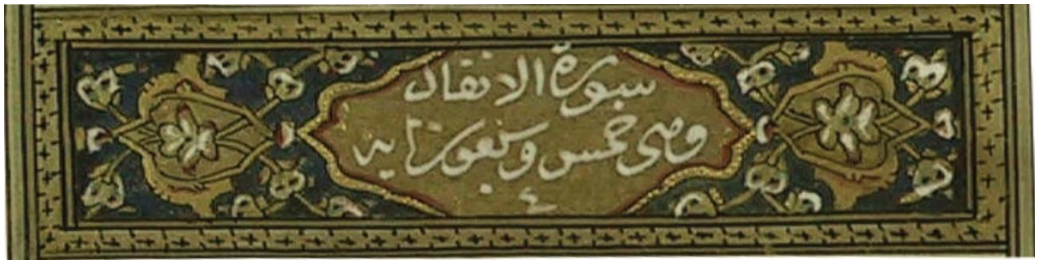 سورة الانفال
وهى خمس وسبعون اية
ع